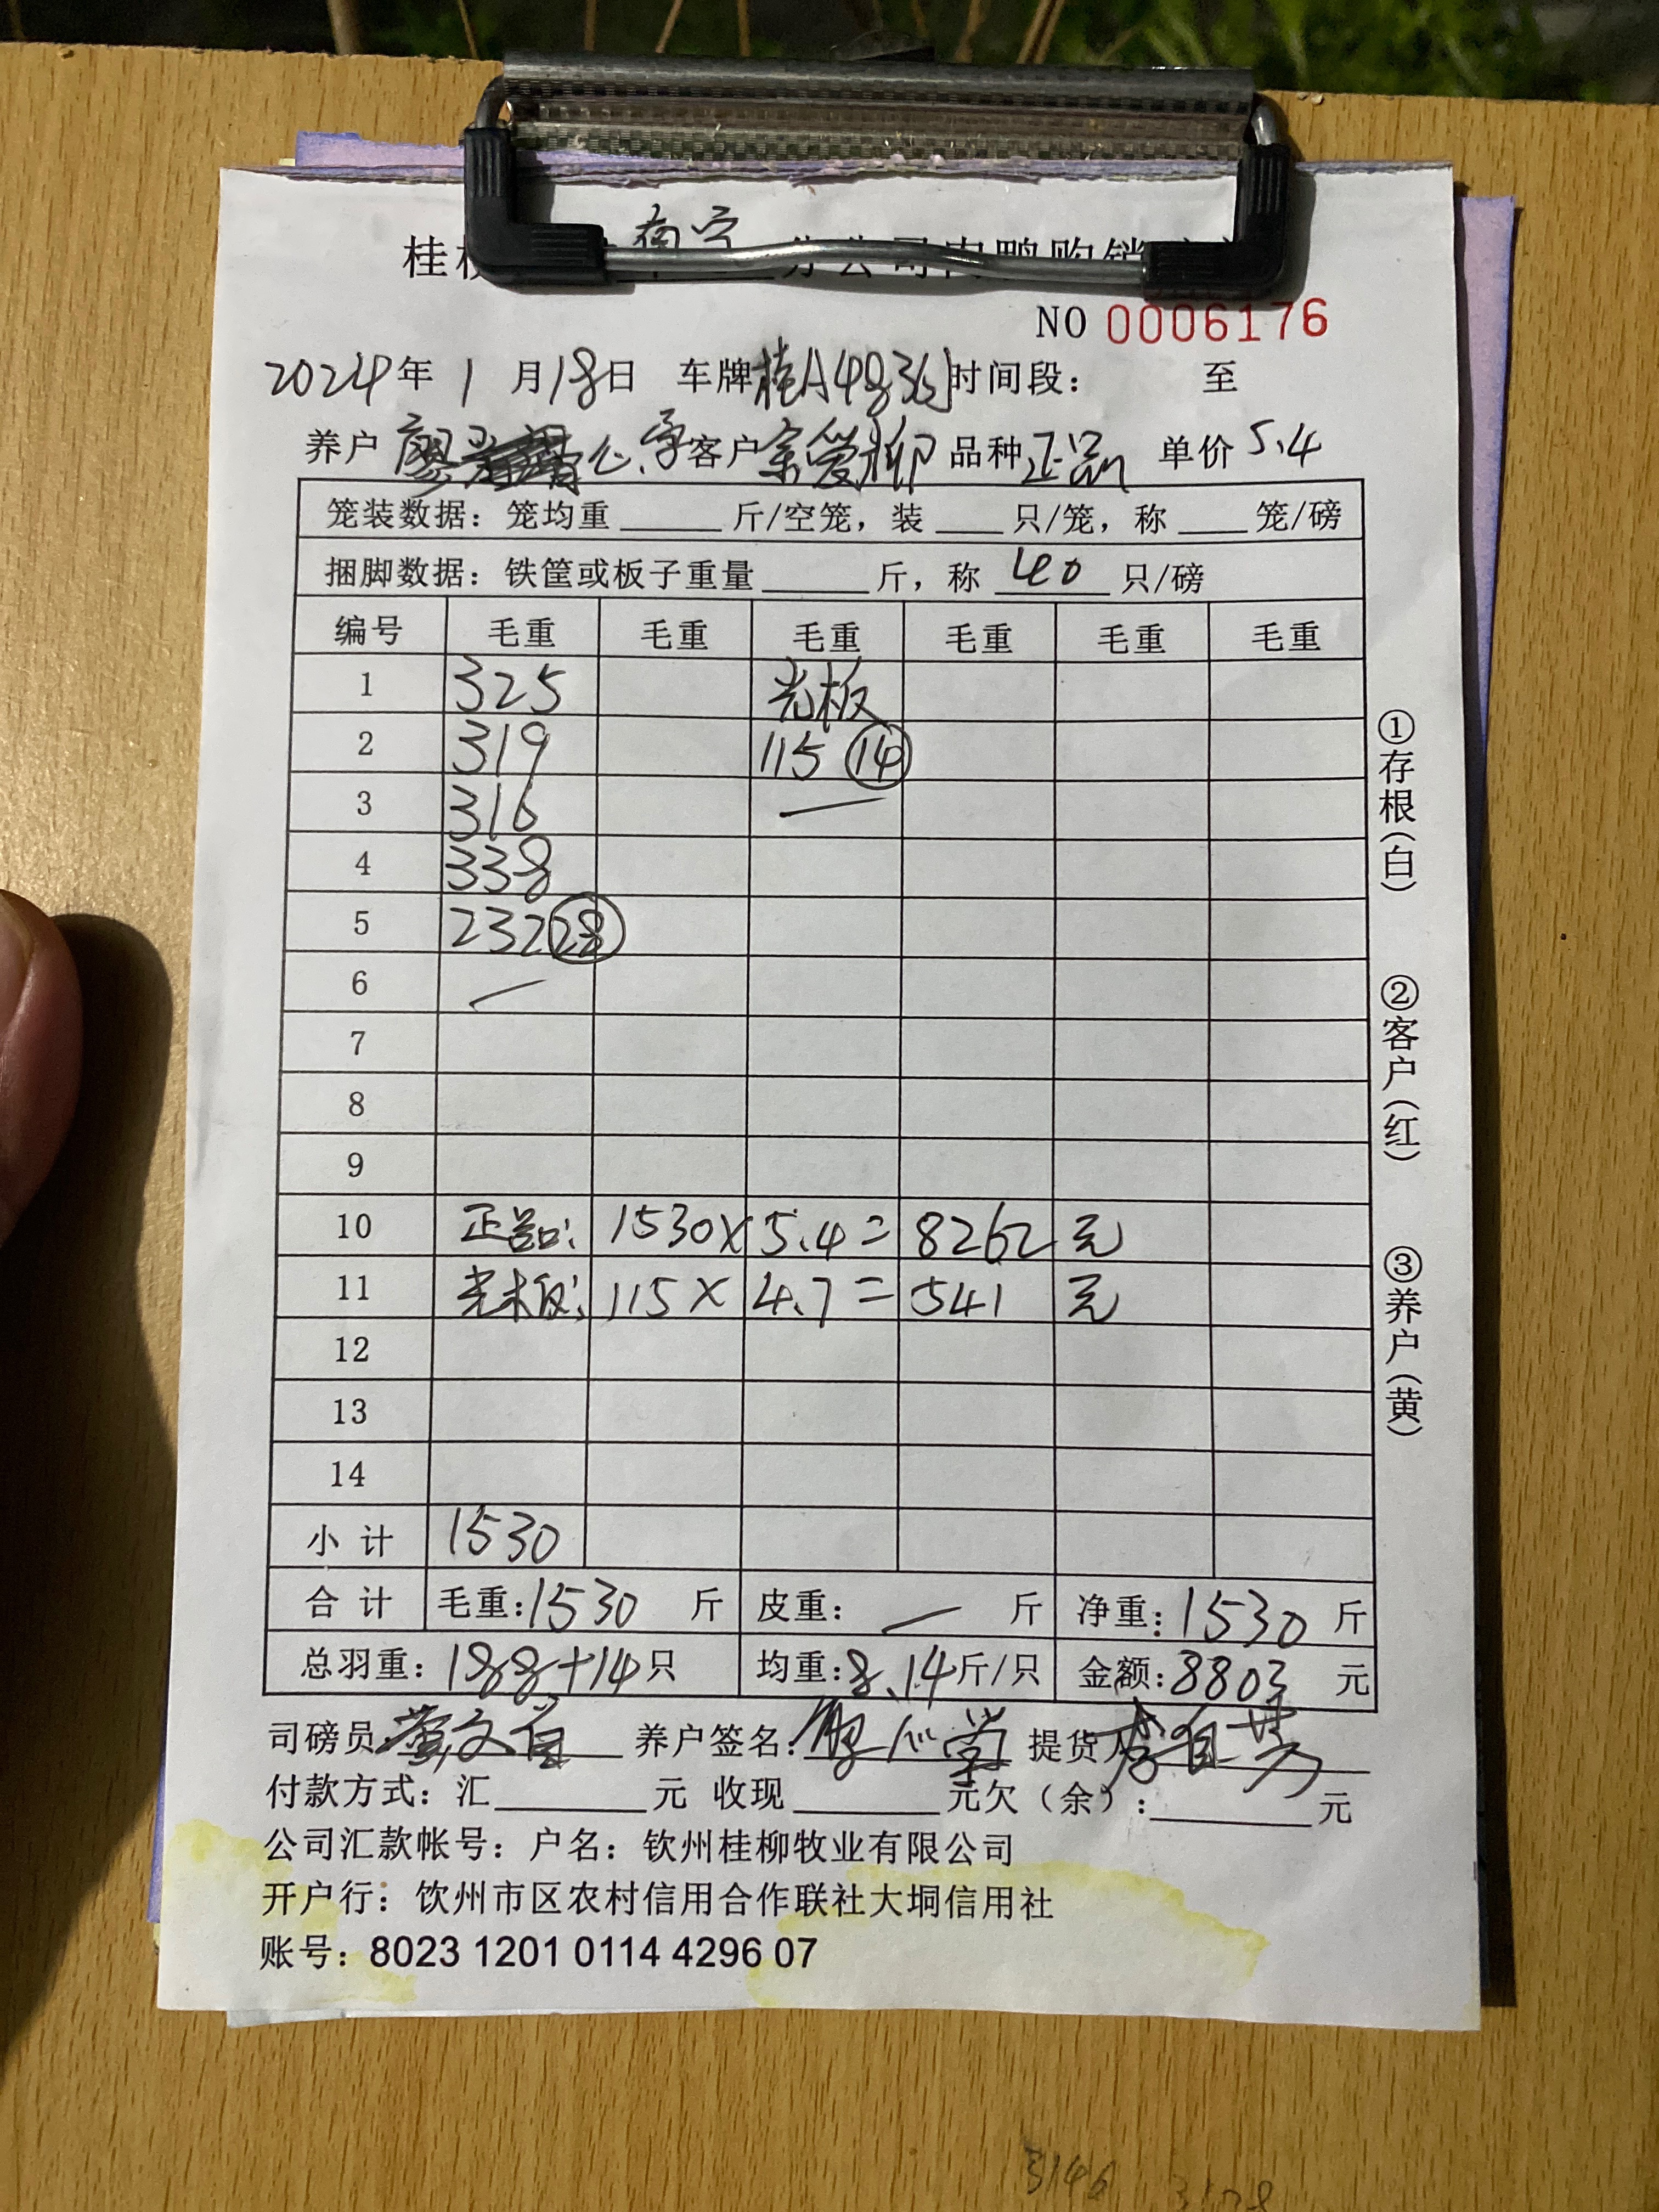 桂 南宁 分公司肉鸭购销
NO 0006176
2024年 1 月18日 车牌桂A48 时间段： 至
养户 廖 心学 客户宗爱柳 品种正品 单价5.4
笼装数据：笼均重______斤/空笼，装____只/笼，称____笼/磅
捆脚数据：铁筐或板子重量______斤，称 40 只/磅
编号 毛重 毛重 毛重 毛重 毛重 毛重
1 325 光板
2 319 115 14
3 316 —
4 338
5 232 28
6 —
7
8
9
10 正品: 1530×5.4=8262元
11 光板: 115×4.7=541元
12
13
14
小计 1530
合计 毛重:1530 斤 皮重: — 斤 净重:1530斤
总羽重:188+14只 均重:8.14斤/只 金额:8803 元
司磅员: 文 养户签名: 廖心学 提货人
付款方式：汇________元 收现________元欠（余）:________元
公司汇款帐号：户名：钦州桂柳牧业有限公司
开户行：饮州市区农村信用合作联社大垌信用社
账号：8023 1201 0114 4296 07
①存根(白)
②客户(红)
③养户(黄)
3146